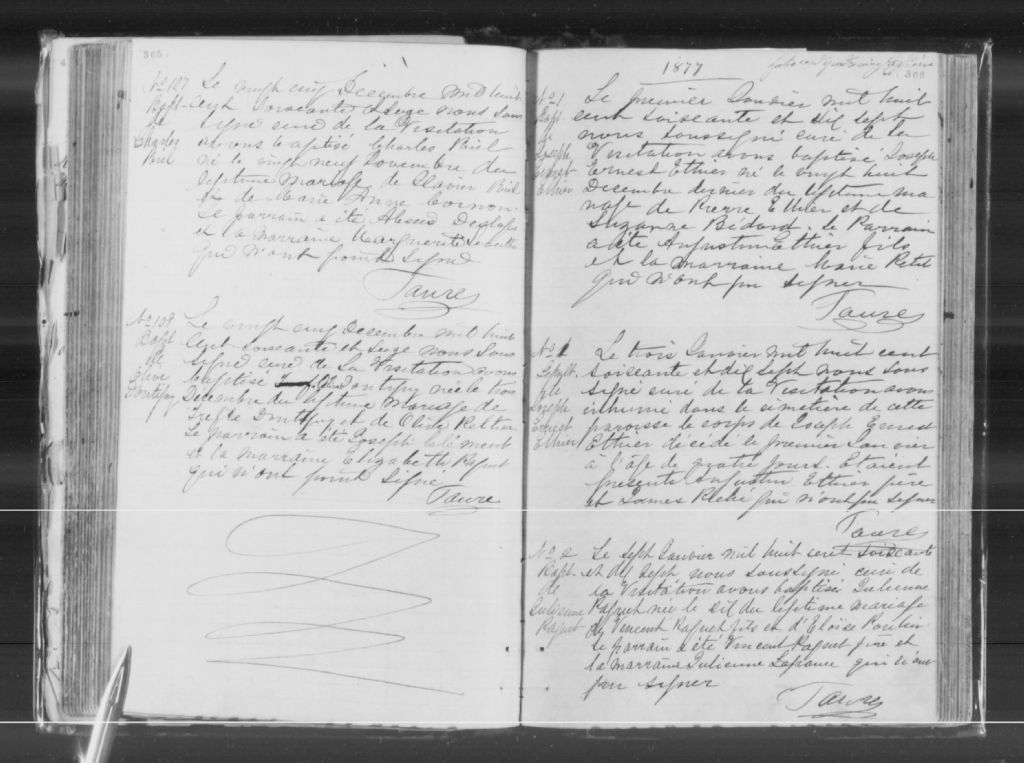 365.
No 107
Bapt.
de
Charles
Riel
Le vingt cinq Decembre mil huit
cent soixante et seize nous sous
signé curé de la Visitation
avons baptisé Charles Riel
né le vingt neuf Novembre du
legitime mariage de Riel
et de Marie Anne
Le parrain a été
et la marraine Marguerite
qui n'ont point signé
Taure
No 108
Bapt
de
Olive
Dontigny
Le vingt cinq Decembre mil huit
cent soixante et seize nous sous
signé curé de la Visitation avons
baptisé Olive Dontigny née le trois
Decembre du legitime mariage de
et de Olive
Le parrain a été Joseph Clement
et la marraine Elizabeth Paquet
qui n'ont point signé
Taure
1877
366
No 1
Bapt.
de
Joseph
Ernest
Ethier
Le premier Janvier mil huit
cent soixante et dix sept
nous soussigné curé de la
Visitation avons baptisé Joseph
Ernest Ethier né le vingt huit
Decembre dernier du legitime ma
riage de Pierre Ethier et de
Suzanne Bédard. Le Parrain
a été Augustin Ethier fils
et la marraine Marie Petit
qui n'ont pu signer
Taure
No 1
Sepult
de
Joseph
Ernest
Ethier
Le trois Janvier mil huit cent
soixante et dix sept nous sous
signé curé de la Visitation avons
inhumé dans le cimetière de cette
paroisse le corps de Joseph Ernest
Ethier décédé le premier Janvier
à l'age de quatre jours. Etaient
présents Augustin Ethier père
et James qui n'ont pu signer
Taure
No 2
Bapt.
de
Julienne
Paquet
Le sept Janvier mil huit cent soixante
et dix sept nous soussigné curé de
la Visitation avons baptisé Julienne
Paquet née le six du legitime mariage
de Vincent Paquet fils et d'Eloise Poulin
le parrain a été Vincent Paquet père et
la marraine Julienne Lafrance qui n'ont
pu signer
Taure